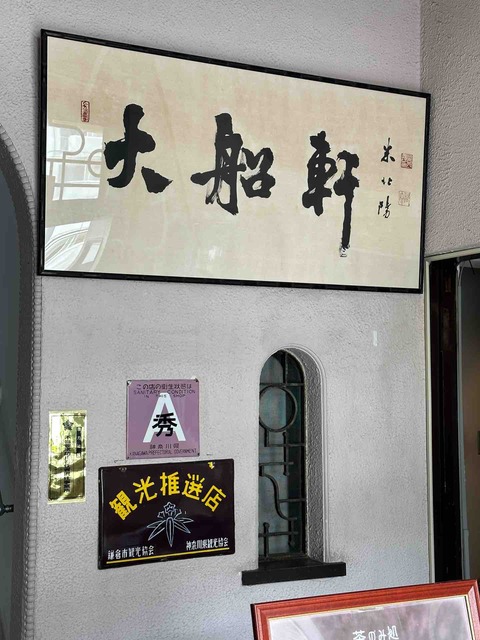 大船軒
米北陽
この店の衛生状態は
SANITARY CONDITION
IN THIS SHOP
A
秀
神奈川県
KANAGAWA PREFECTURAL GOVERNMENT
観光推選店
鎌倉市観光協会
神奈川県観光協会
茶のみ処